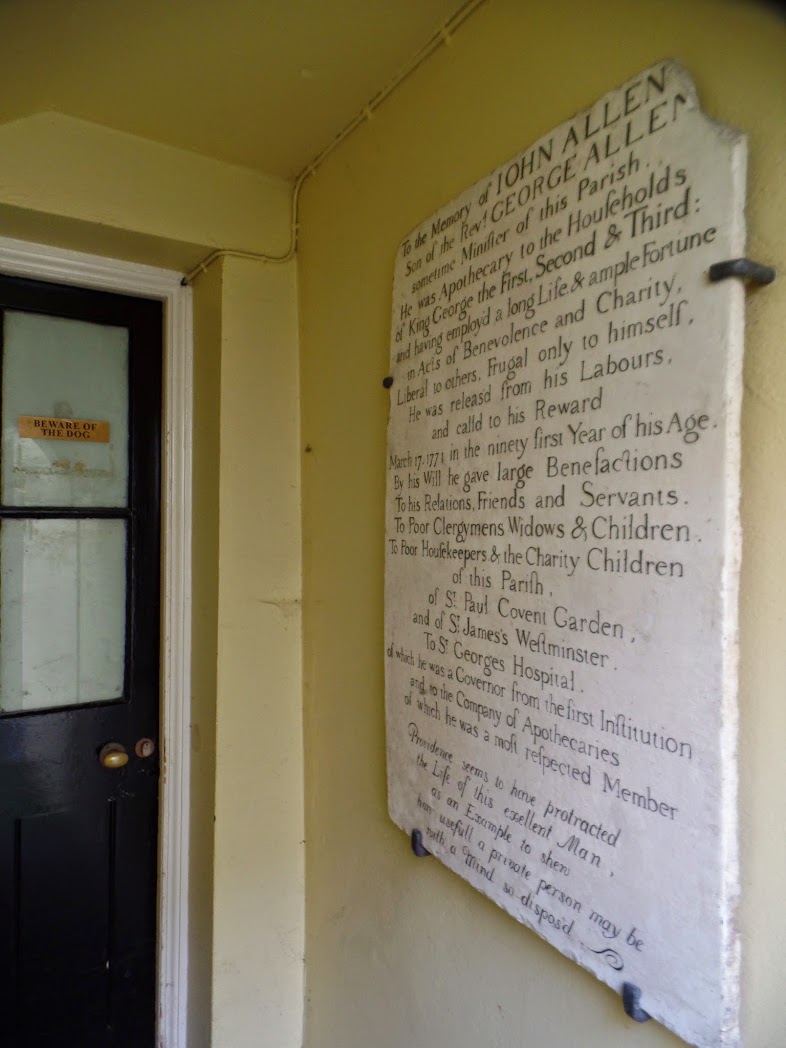 BEWARE OF
THE DOG
To the Memory of IOHN ALLEN
Son of the Revd. GEORGE ALLEN
sometime Miniſter of this Pariſh..
He was Apothecary to the Houſeholds
of King George the First, Second & Third:
and having employ'd a long Life & ample Fortune
in Acts of Benevolence and Charity,
Liberal to others, Frugal only to himself,
He was releasd from his Labours,
and calld to his Reward
March 17. 1771 in the ninety first Year of his Age.
By his Will he gave large Benefactions
To his Relations, Friends and Servants.
To Poor Clergymens Widows & Children.
To Poor Houſekeepers & the Charity Children
of this Pariſh,
of St. Paul Covent Garden,
and of St. James's Weſtminster.
To St. Georges Hospital.
of which he was a Governor from the first Inſtitution
and to the Company of Apothecaries
of which he was a moſt reſpected Member
Providence seems to have protracted
the Life of this excellent Man,
as an Example to shew
how usefull a private person may be
with a Mind so dispos'd